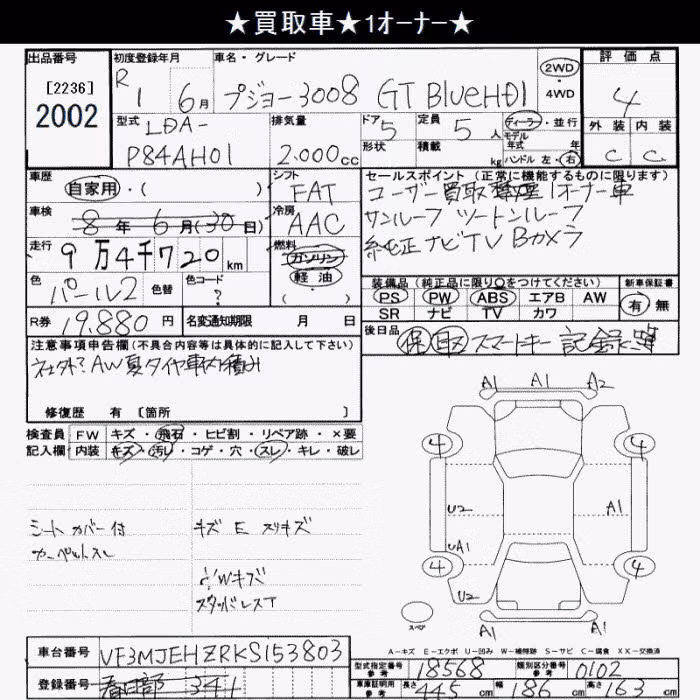 ★買取車★1オーナー★
出品番号
[2236]
2002
初度登録年月
R1 6月
車名・グレード
プジョー3008 GT BlueHDI
2WD
・4WD
評価点
4
外装 内装
C C
型式
LDA-
P84AH01
排気量
2.000cc
ドア 5
形状
定員 5人
積載 kg
ディーラー・並行
モデル年式 年
ハンドル 左・右
車歴
自家用・( )
シフト
FAT
車検
8年 6月(30日)
冷房
AAC
走行
9万4千720km
燃料
ガソリン
軽油
色
パール2
色替
色コード
?
R券 19.880円
名変通知期限 月 日
セールスポイント(正常に機能するものに限ります)
ユーザー買取 1オーナー車
サンルーフ ツートンルーフ
純正ナビTV Bカメラ
装備品(純正品に限り○をつけてください)
PS PW ABS エアB AW
SR ナビ TV カワ
新車保証書
有 無
後日品
保 取 スマートキー 記録簿
注意事項申告欄(不具合内容等は具体的に記入して下さい)
社外?AW夏タイヤ車内積み
修復歴 有 [箇所 ]
検査員記入欄
FW キズ・飛石・ヒビ割・リペア跡・×要
内装 キズ・汚レ・コゲ・穴・スレ・キレ・破レ
シートカバー付
カーペットスレ
キズ E スリキズ
小Wキズ
スタッドレスT
A1 A1 A2
4 4
U2 A1
UA1
4 4
U2
A1 A1
スペア
A-キズ E-エクボ U-凹み W-補修跡 S-サビ C-腐食 XX-交換済
車台番号 VF3MJEHZRKS153803
登録番号 春日部 341
型式指定番号 参考 18568
類別区分番号 参考 0102
車庫証明用 参考 長さ 445cm 幅 186cm 高さ 163cm